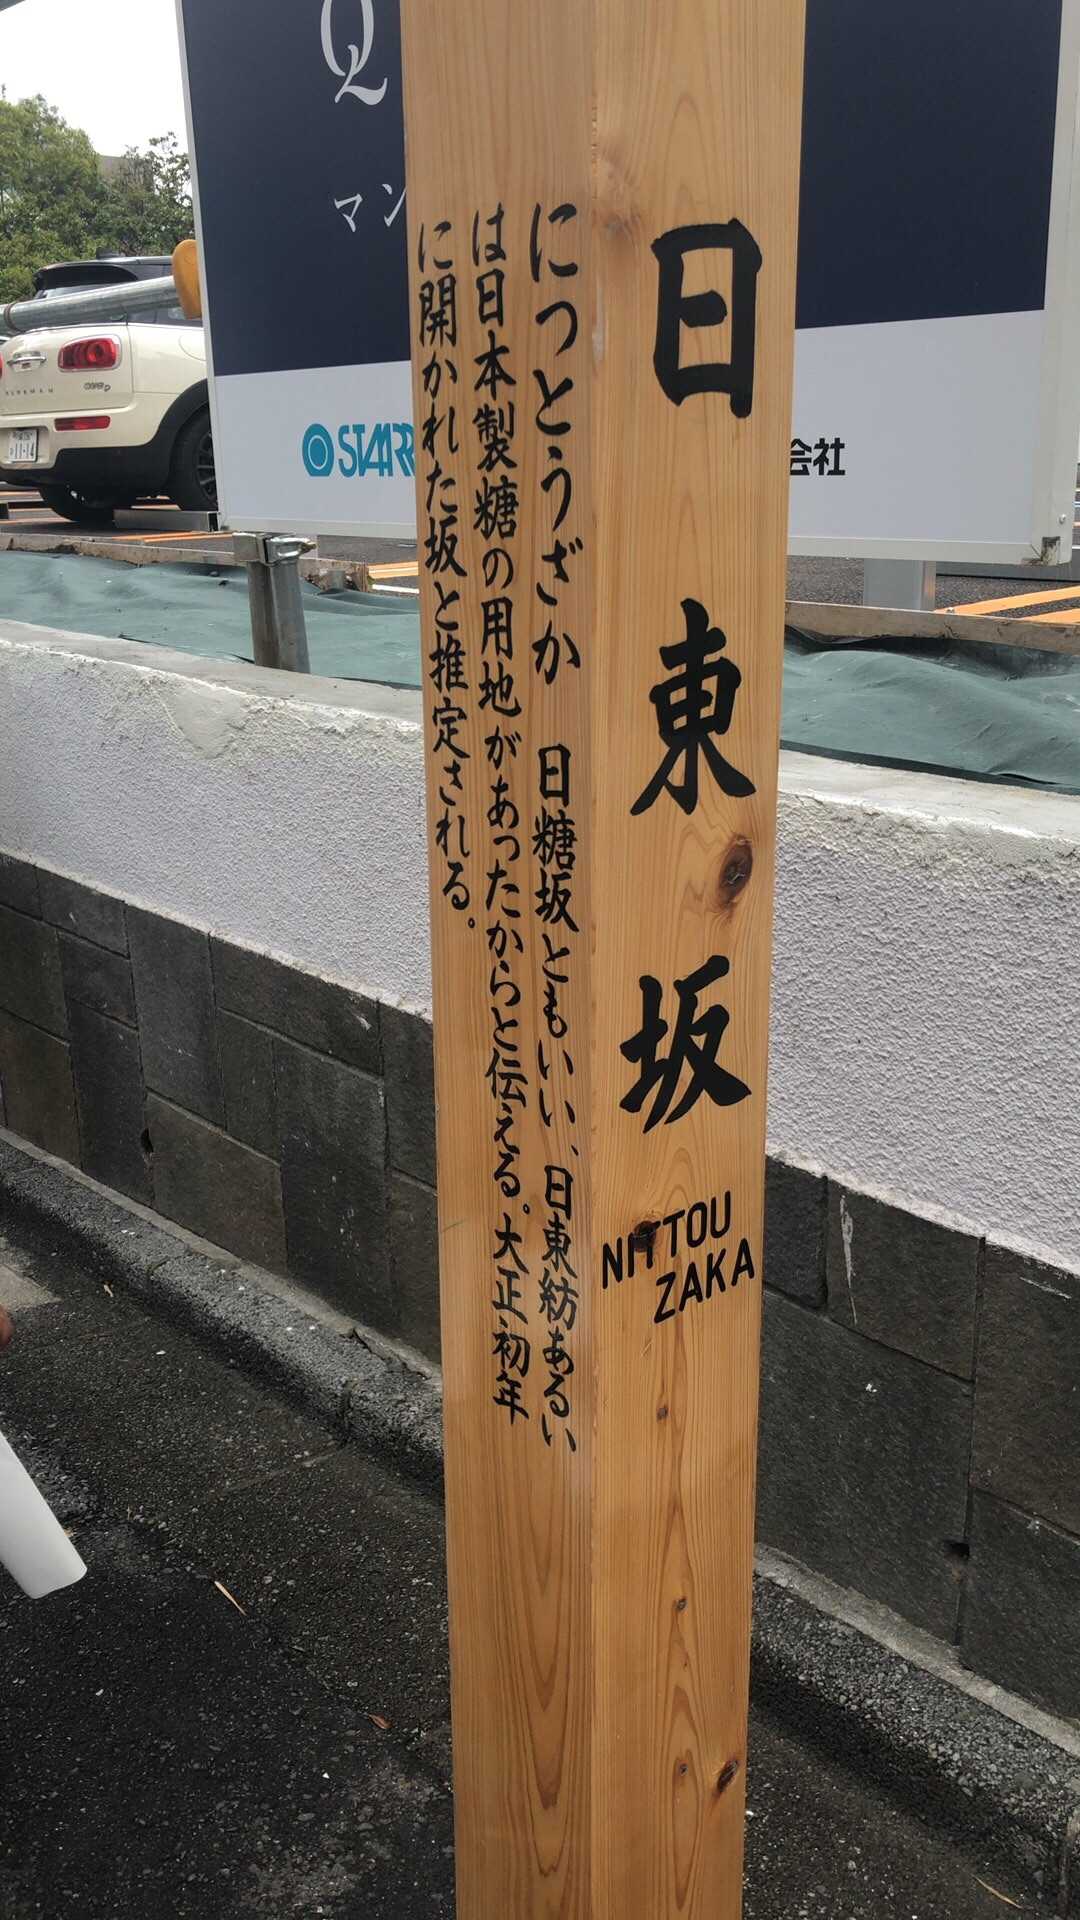 日東坂
NITTOU
ZAKA
にっとうざか 日糖坂ともいい、日東紡あるい
は日本製糖の用地があったからと伝える。大正初年
に開かれた坂と推定される。
Q
マン
STARR
会社
CLUBMAN
COOPER D
11-14